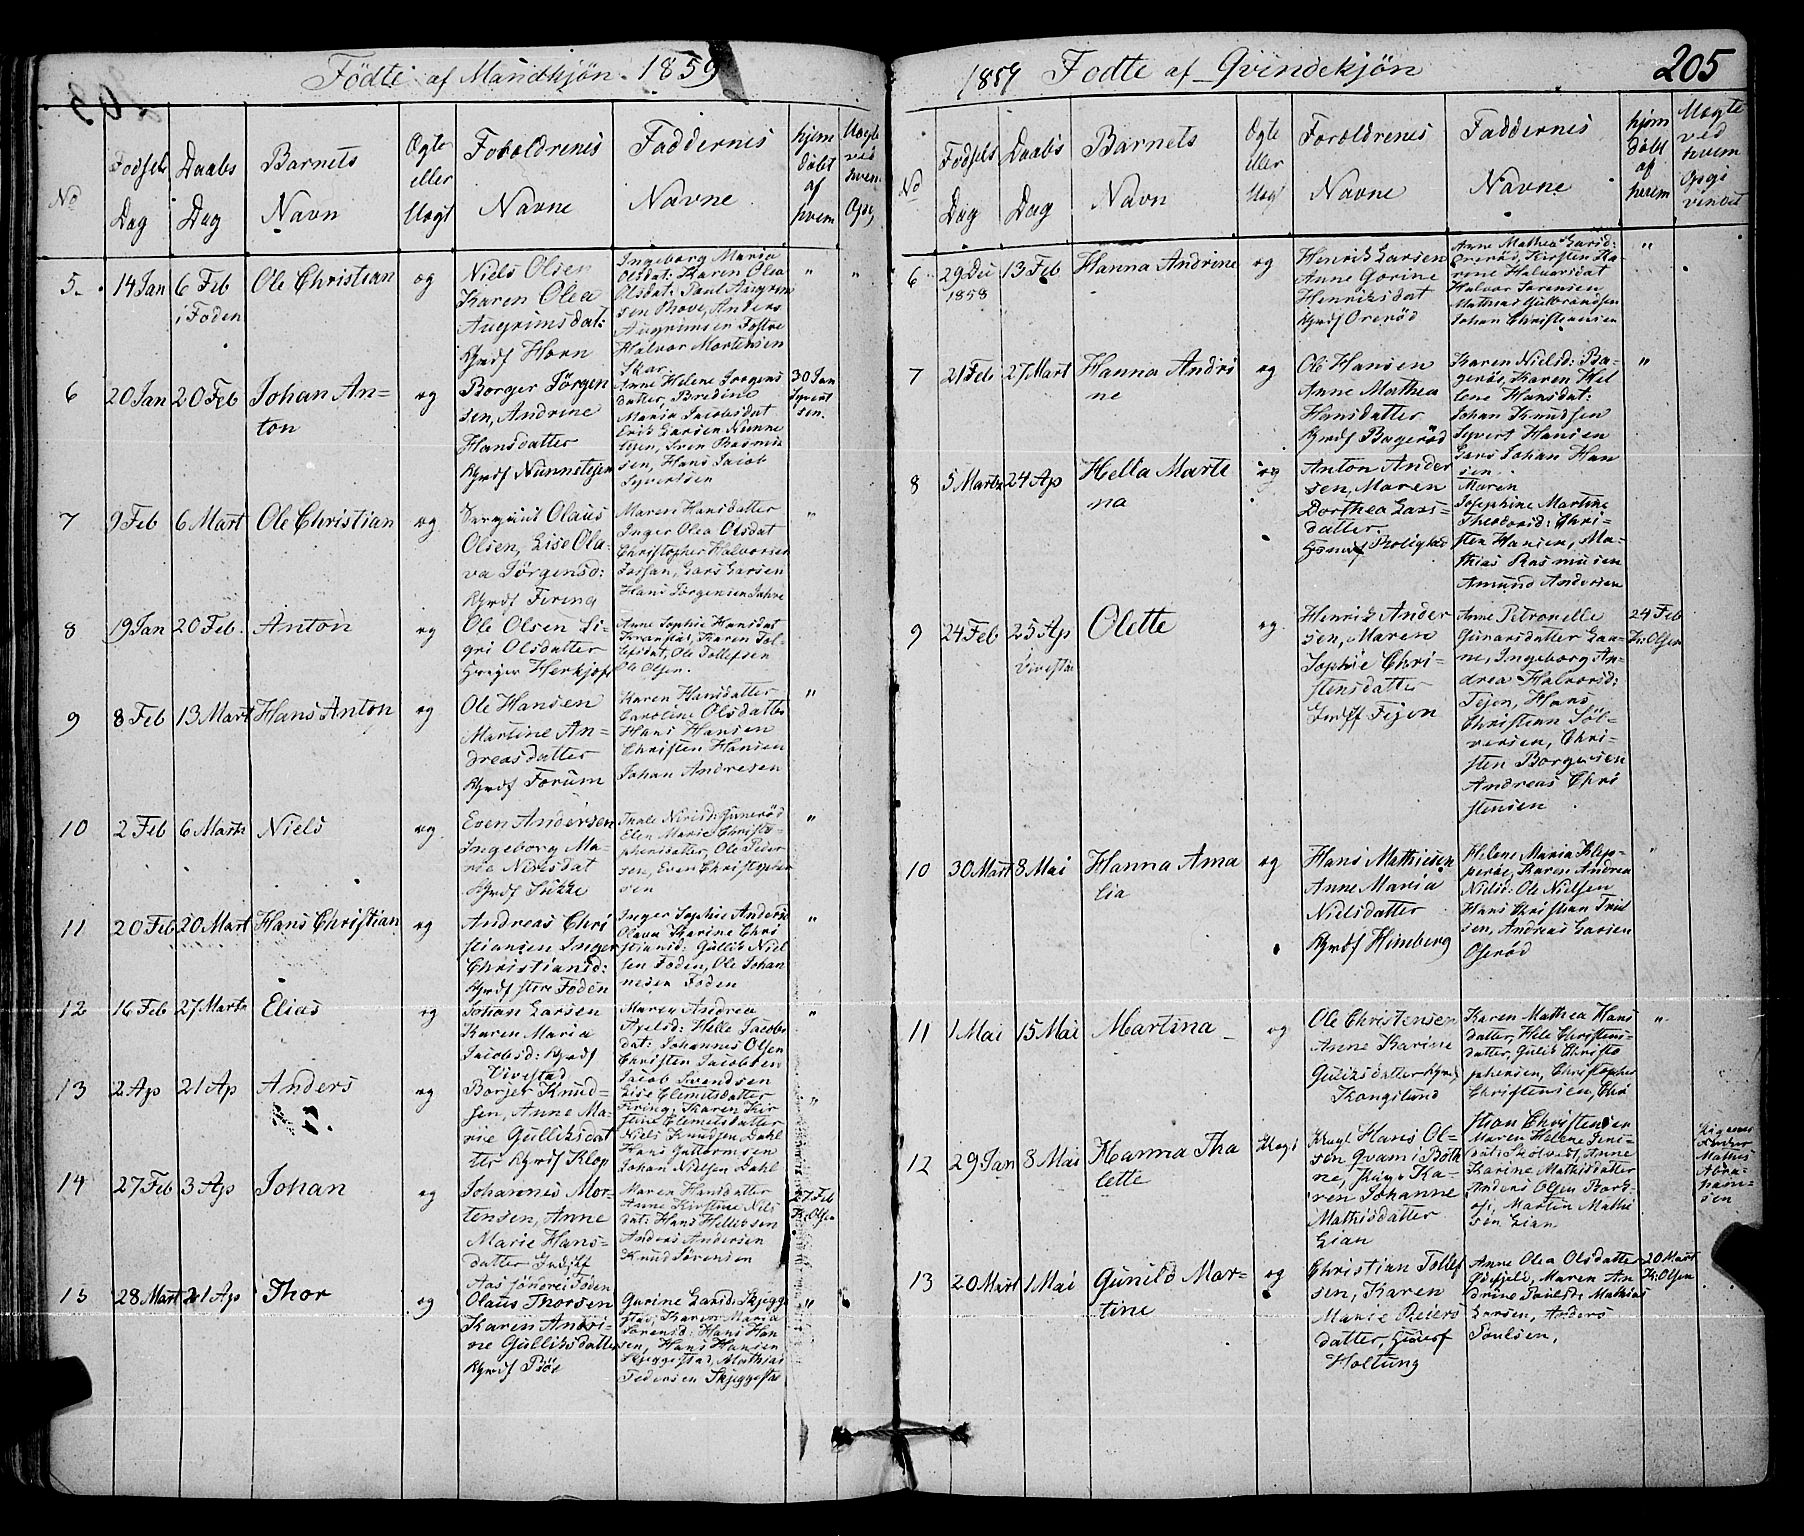 Födte af Mandkjön. 1859
No
Fodsels Dag
Daabs Dag
Barnets Navn
Ægte eller Uægt
Foroldrenes Navne
Faddernes Navne
hjem dobt af hvem
Uægte ved hvem
5. 14 Jan 6 Feb i Foden Ole Christian æg
Niels Olsen
Karen Olea
Augrimsdat:
Gmdf Horn
Ingeborg Maria
Olsdat: Karen Olea
Olsdat: Paul Augrim
sen Anders
Augrimsen
Halvor Mortensen
6 20 Jan 20 Feb Johan An-
ton æg
Borger Jörgen
sen, Andrine
Hansdatter
Gmdf
Anne Helene Jorgens
datter, Bredine
Maria Jacobsdat
Erik Larsen
Sven Rasmu
sen, Hans Jacob
Syvertsen
30 Jan
Syvert
sen.
7 9 Feb 6 Mart Ole Christian æg
Olaus
Olsen, Lise Ola-
va Jörgensd:
Gmdf Firing
Maren Hansdatter
Inger Olea Olsdat
Christopher Halvorsen
Lars Larsen
Hans Jörgensen
8 19 Jan 20 Feb. Anton æg
Ole Olsen Si-
gri Olsdatter
Anne Sophie Hansdat
Karen Tol-
lefsdat, Ole Tollefsen
Ole Olsen.
9 8 Feb 13 Mart Hans Anton æg
Ole Hansen
Martine An-
dreasdatter
Gmdf Forum
Karen Hansdatter
Caroline Olsdatter
Hans Hansen
Christen Hansen
Johan Andresen
10 2 Feb 6 Marts Niels æg.
Even Andersen
Ingeborg Ma-
rie Nielsdat
Gmdf
Elen Marie Christo-
phersdatter, Ole Peder
sen, Even Christopher
sen
11 20 Feb 20 Mart Hans Christian æg
Andreas Chri
stiansen Inger
Christiansd:
Gmdf store Foden
Inger Sophie Andersd
Olava Karine Chri
stiansd: Gullik Niel
sen Foden, Ole Johan
nesen Foden
12 16 Feb 27 Marts Elias æg
Johan Larsen
Karen Maria
Jacobsd: Gmdf
Vivestad
Maren Andrea
Axelsd: Helle Jacobs
dat: Johannes Olsen
Christen Jacobsen
Jacob Svendsen
13 2 Ap 21 Ap Anders æg
Borjer Knud-
sen, Anne Ma-
rie Gulliksdat
ter Gmdf Klop
Lise Clemetsdatter
Firing, Karen Kir
stine Clemetsdatter
Niels Knudsen Dahl
Hans Guttormsen
Johan Nielsen Dahl
14 27 Feb 3 Ap Johan æg
Johannes Mor-
tensen, Anne
Marie Hans-
datter
Foden
Maren Hansdatter
Anne Kirstine Niels
dat: Hans Hellissen
Anders Andersen
Knud Sörensen
27 Feb
K: Olsen
15 28 Mart 21 Ap Thor æg
Olaus Thorsen
Karen Andri-
ne Gulliksdatter
Gmdf Bö
Gurine Larsd: Skjegge
stad, Karen Maria
Sorensd: Hans Han
sen, Hans Hansen
Skjeggestad, Mathias
Pedersen Skjeggestad
1859 Fodte af Qvindekjön
205
No
Fodsels Dag
Daabs Dag
Barnets Navn
Ægte eller Uægt
Foroldrenes Navne
Faddernes Navne
hjem dobt af hvem
Uægte ved hvem
6 29 Dec 1858 13 Feb Hanna Andrine æg
Henrik Larsen
Anne Gorine
Henriksdat
Gmdf Orerød
Anne Mathea Larsd:
Orerös, Kirsten Ka-
rine Halvorsdat
Halvor Sorensen
Mathias Gulbrandsen
Johan Christensen
7 21 Feb 27 Mart Hanna Andri
ne æg
Ole Hansen
Anne Mathea
Hansdatter
Gmdf Bagerød
Karen Nielsd: Ba-
gerös, Karen Hel
lene Hansdat:
Johan Knudsen
Syvert Hansen
Lars Johan Han
sen.
8 5 Marts 24 Ap Hella Marte
na æg
Anton Ander
sen, Maren
Dorthea Lars-
datter
Maren
Josephine Martine
Theodorsd: Chri-
sten Hansen, Ma-
thias Rasmusen
Amund Andersen
9 24 Feb 25 Ap Vivestad Olette æg
Henrik Ander
sen, Maren
Sophie Chri-
stensdatter
Anne Petronelle
Gunarsdatter Laa-
ne, Ingeborg An-
drea Halvorsd:
Hans
Christian Söl-
versen, Chri-
sten Borgersen
Andreas Chri
stensen
24 Feb
K: Olsen
10 30 Mart 8 Mai Hanna Ama
lia æg
Hans Mathiesen
Anne Maria
Nielsdatter
Gmdf Himberg
Helene Maria Klop-
Karen Andrea
Nielsd: Ole Nielsen
Hans Christian
sen, Andreas Larsen
Oserød
11 1 Mai 15 Mai Martina æg
Ole Christensen
Anne Karine
Guliksdatter Gmdf
Kongslund
Karen Mathea Hans
datter, Hele Christens-
datter, Gulik Christo
phersen, Christopher
Christensen, Chri
stian Christensen
12 29 Jan 8 Mai Hanna Tha
lette Uægt
Hans Ol-
sen Qvam i Both
ne, Pige Ka-
ren Johanne
Mathisdatter
Lian
Maren Helene Jens-
dat: Anne
Karine Mathisdatter
Anders Olsen
Martin Mathi
sen Lian
Anders
Mathis
Abra-
ham-
sen
13 20 Mart 1 Mai Gunild Mar-
tine æg
Christian Tollef
sen, Karen
Marie Reiers
datter,
Holtung
Anne Olea Olsdatter
Maren An
drine Paulsd: Mathias
Larsen, Anders
Paulsen,
20 Mart
K: Olsen